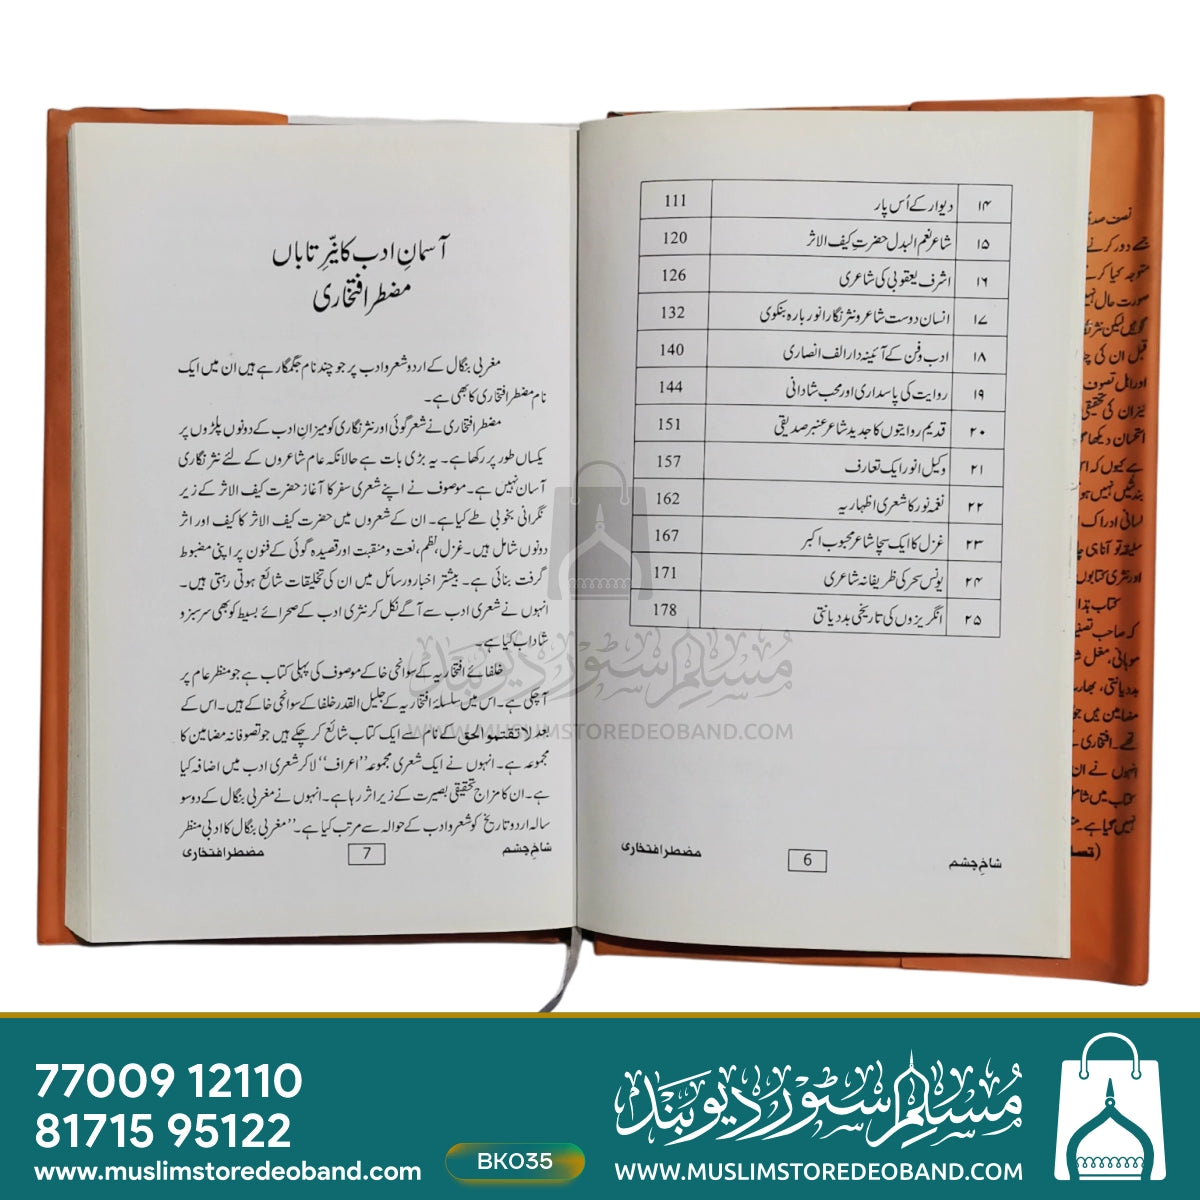 ۱۴ دیوار کے اُس پار 111
۱۵ شاعر نعم البدل حضرتِ کیف الاثر 120
۱۶ اشرف یعقوبی کی شاعری 126
۱۷ انسان دوست شاعر و نثر نگار انور بارہ بنکوی 132
۱۸ ادب و فن کے آئینہ دار الف انصاری 140
۱۹ روایت کی پاسداری اور محب شادانی 144
۲۰ قدیم روایتوں کا جدید شاعر عنبر صدیقی 151
۲۱ وکیل انور ایک تعارف 157
۲۲ نغمہ نور کا شعری اظہاریہ 162
۲۳ غزل کا ایک سچا شاعر محبوب اکبر 167
۲۴ یونس سحر کی ظریفانہ شاعری 171
۲۵ انگریزوں کی تاریخی بددیانتی 178
شاخِ چشم 6 مضطر افتخاری
آسمانِ ادب کا نیّرِ تاباں
مضطر افتخاری
مغربی بنگال کے اردو شعر و ادب پر جو چند نام جگمگا رہے ہیں ان میں ایک
نام مضطر افتخاری کا بھی ہے۔
مضطر افتخاری نے شعر گوئی اور نثر نگاری کو میزانِ ادب کے دونوں پلڑوں پر
یکساں طور پر رکھا ہے۔ یہ بڑی بات ہے حالانکہ عام شاعروں کے لئے نثر نگاری
آسان نہیں ہے۔ موصوف نے اپنے شعری سفر کا آغاز حضرت کیف الاثر کے زیر
نگرانی بخوبی طے کیا ہے۔ ان کے شعروں میں حضرت کیف الاثر کا کیف اور اثر
دونوں شامل ہیں۔ غزل، نظم، نعت و منقبت اور قصیدہ گوئی کے فنون پر اپنی مضبوط
گرفت بنائی ہے۔ بیشتر اخبار و رسائل میں ان کی تخلیقات شائع ہوتی رہتی ہیں۔
انہوں نے شعری ادب سے آگے نکل کر نثری ادب کے صحرائے بسیط کو بھی سرسبز و
شاداب کیا ہے۔
خلفائے افتخاریہ کے سوانحی خاکے موصوف کی پہلی کتاب ہے جو منظر عام پر
آچکی ہے۔ اس میں سلسلۂ افتخاریہ کے جلیل القدر خلفا کے سوانحی خاکے ہیں۔ اس کے
بعد لا تقتمو الحق کے نام سے ایک کتاب شائع کر چکے ہیں جو تصوفانہ مضامین کا
مجموعہ ہے۔ انہوں نے ایک شعری مجموعہ "اعراف" لاکر شعری ادب میں اضافہ کیا
ہے۔ ان کا مزاج تحقیقی بصیرت کے زیر اثر رہا ہے۔ انہوں نے مغربی بنگال کے دو سو
سالہ اردو تاریخ کو شعر و ادب کے حوالہ سے مرتب کیا ہے۔ "مغربی بنگال کا ادبی منظر
شاخِ چشم 7 مضطر افتخاری
مسلم سٹور دیوبند
WWW.MUSLIMSTOREDEOBAND.COM
77009 12110
81715 95122
www.muslimstoredeoband.com
BK035
مسلم سٹور دیوبند
WWW.MUSLIMSTOREDEOBAND.COM